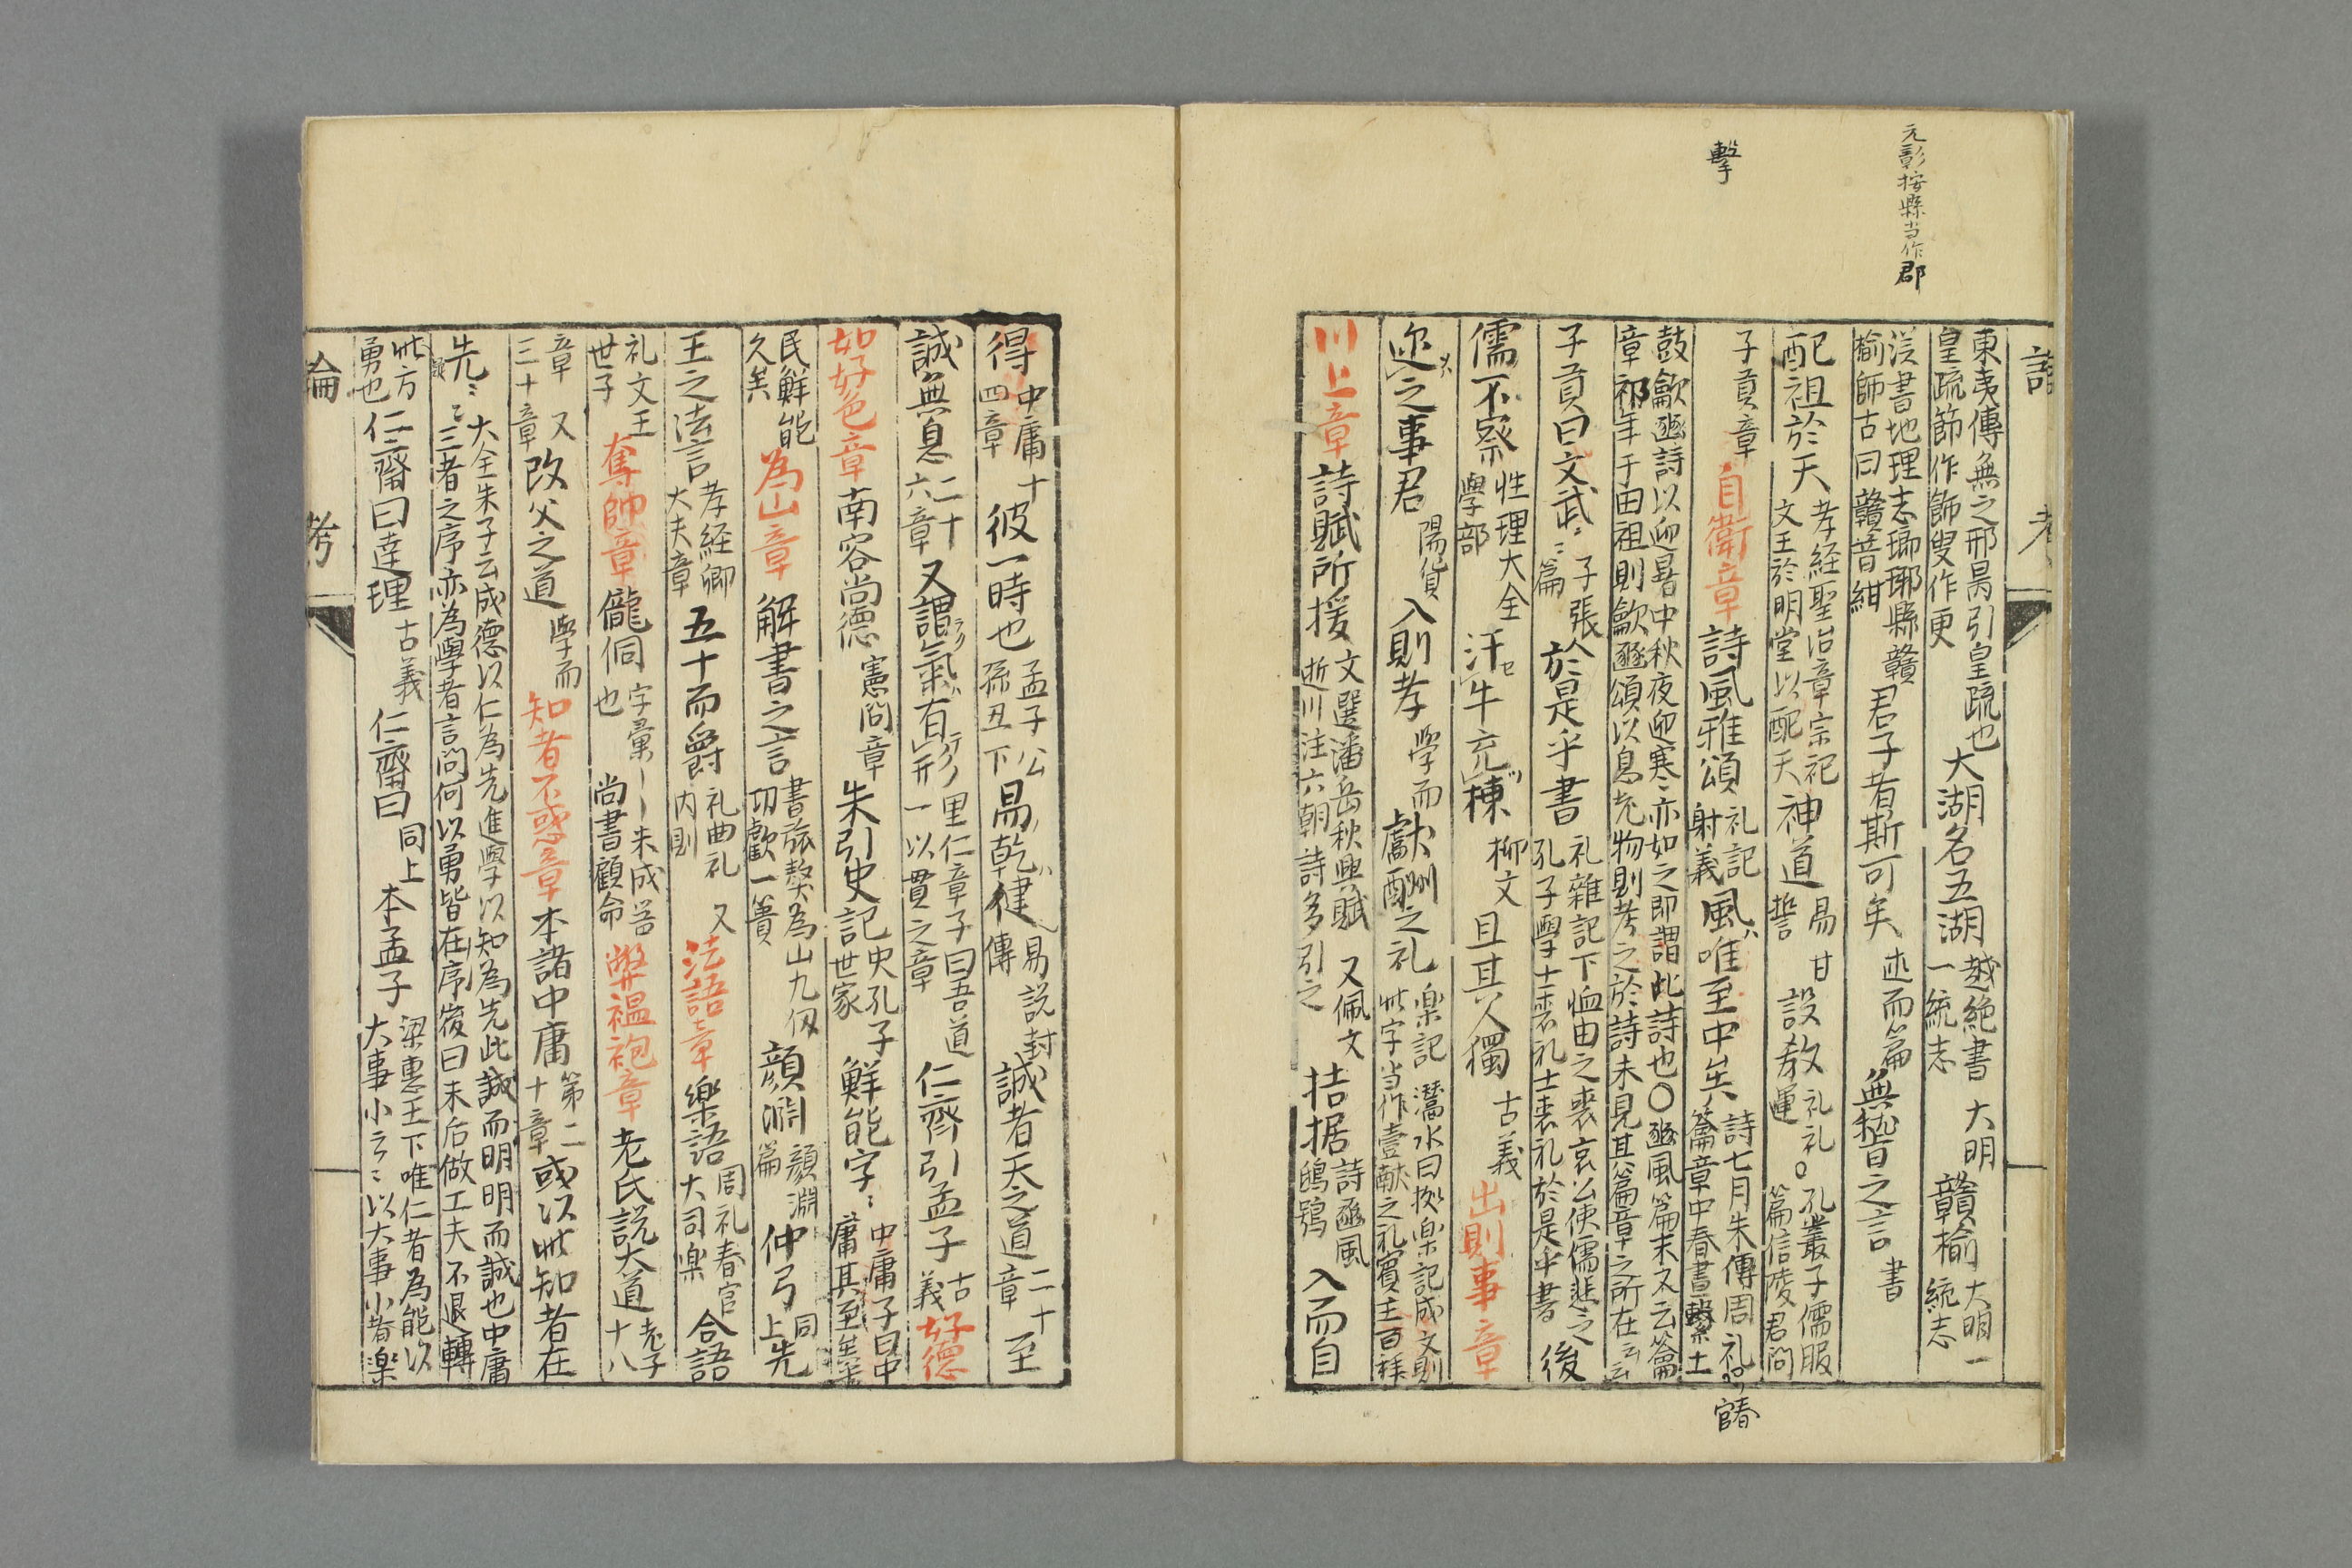 元彰按縣当作郡
撃
語 考
東夷傳無之邢昺引皇疏也 大湖名五湖 越絶書 大明
皇疏節作師叟作更 一統志 贛榆 大明一
統志
漢書地理志瑯琊縣贛
榆師古曰贛音紺 君子者斯可矣 述而篇 無稽之言 書
配祖於天 孝経聖治章宗祀
文王於明堂以配天 神道 易 甘
誓 設教 礼礼○孔叢子儒服
運 篇信陵君問
子貢章 自衛章 詩風雅頌 礼記
射義 風ハ唯至中矣 詩七月朱傳周礼
籥章中春晝繋土
官春
鼓龡豳詩以迎暑中秋夜迎寒亦如之即謂此詩也○豳風篇末又云籥
章祁年于田祖則龡豳頌以息老物則考之於詩未見其篇章之所在云云
子貢曰文武〻 子張
〻篇 於是乎書 礼雜記下恤由之喪哀公使儒悲之
孔子學士喪礼士喪礼於是乎書 後
儒不察 性理大全
學部 汗牛充棟 柳文 且其人獨 古義 出則事章
迩之事君 陽貨 入則孝 学而 獻酬之礼 楽記 濳水曰按楽記成文則
此字当作壹献之礼賓主百拜
川上章 詩賦所援 文選潘岳秋興賦 又佩文
逝川注六朝詩多引之 拮据 詩豳風
鴟鴞 入而自
得 中庸十
四章 彼一時也 孟子公
孫丑下 易乾健 易説卦
傳 誠者天之道 二十
章 至
誠無息 二十
六章 又謂氣有形 里仁章子曰吾道
一以貫之章 仁齊引孟子 古
義 好德
如好色章 南容尚德 憲問章 朱引史記 史孔子
世家 鮮能字〻 中庸子曰中
庸其至矣乎
民鮮能
久矣 為山章 解書之言 書旅獒為山九仭
功歓一簣 顔淵 顔淵
篇 仲弓 同
上 先
王之法言 孝経卿
大夫章 五十而爵 礼曲礼 又
内則 法語章 楽語 周礼春官
大司楽 合語
礼文王
世子 奪帥章 儱侗 字彙——未成器
也 尚書顧命 弊褞袍章 老氏説大道 老子
十八
章 又
三十章 改父之道 学而 知者不惑章 本諸中庸 第二
十章 或以此知者在
先〻 大全朱子云成德以仁為先進學以知為先此誠而明明而誠也中庸
〻三者之序亦為學者言問何以勇皆在序後曰未后做工夫不退轉
此方
勇也 仁齋曰達理 古義 仁齋曰 同上 本孟子 梁惠王下唯仁者為能以
大事小云〻以大事小者楽
論 考